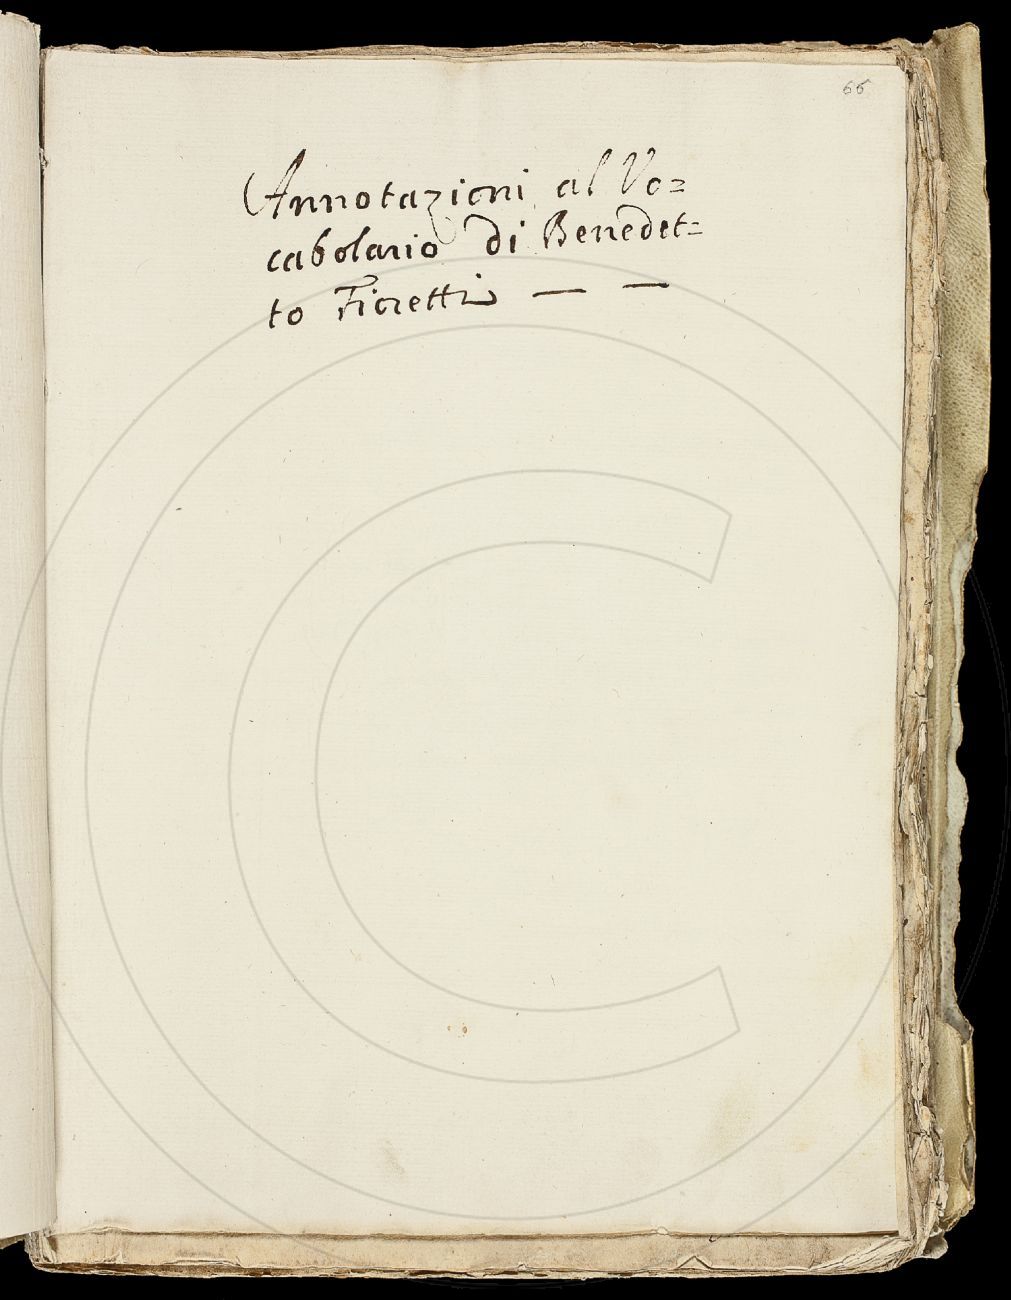 66
Annotazioni al Vo=
cabolario di Benedet=
to Fioretti — —